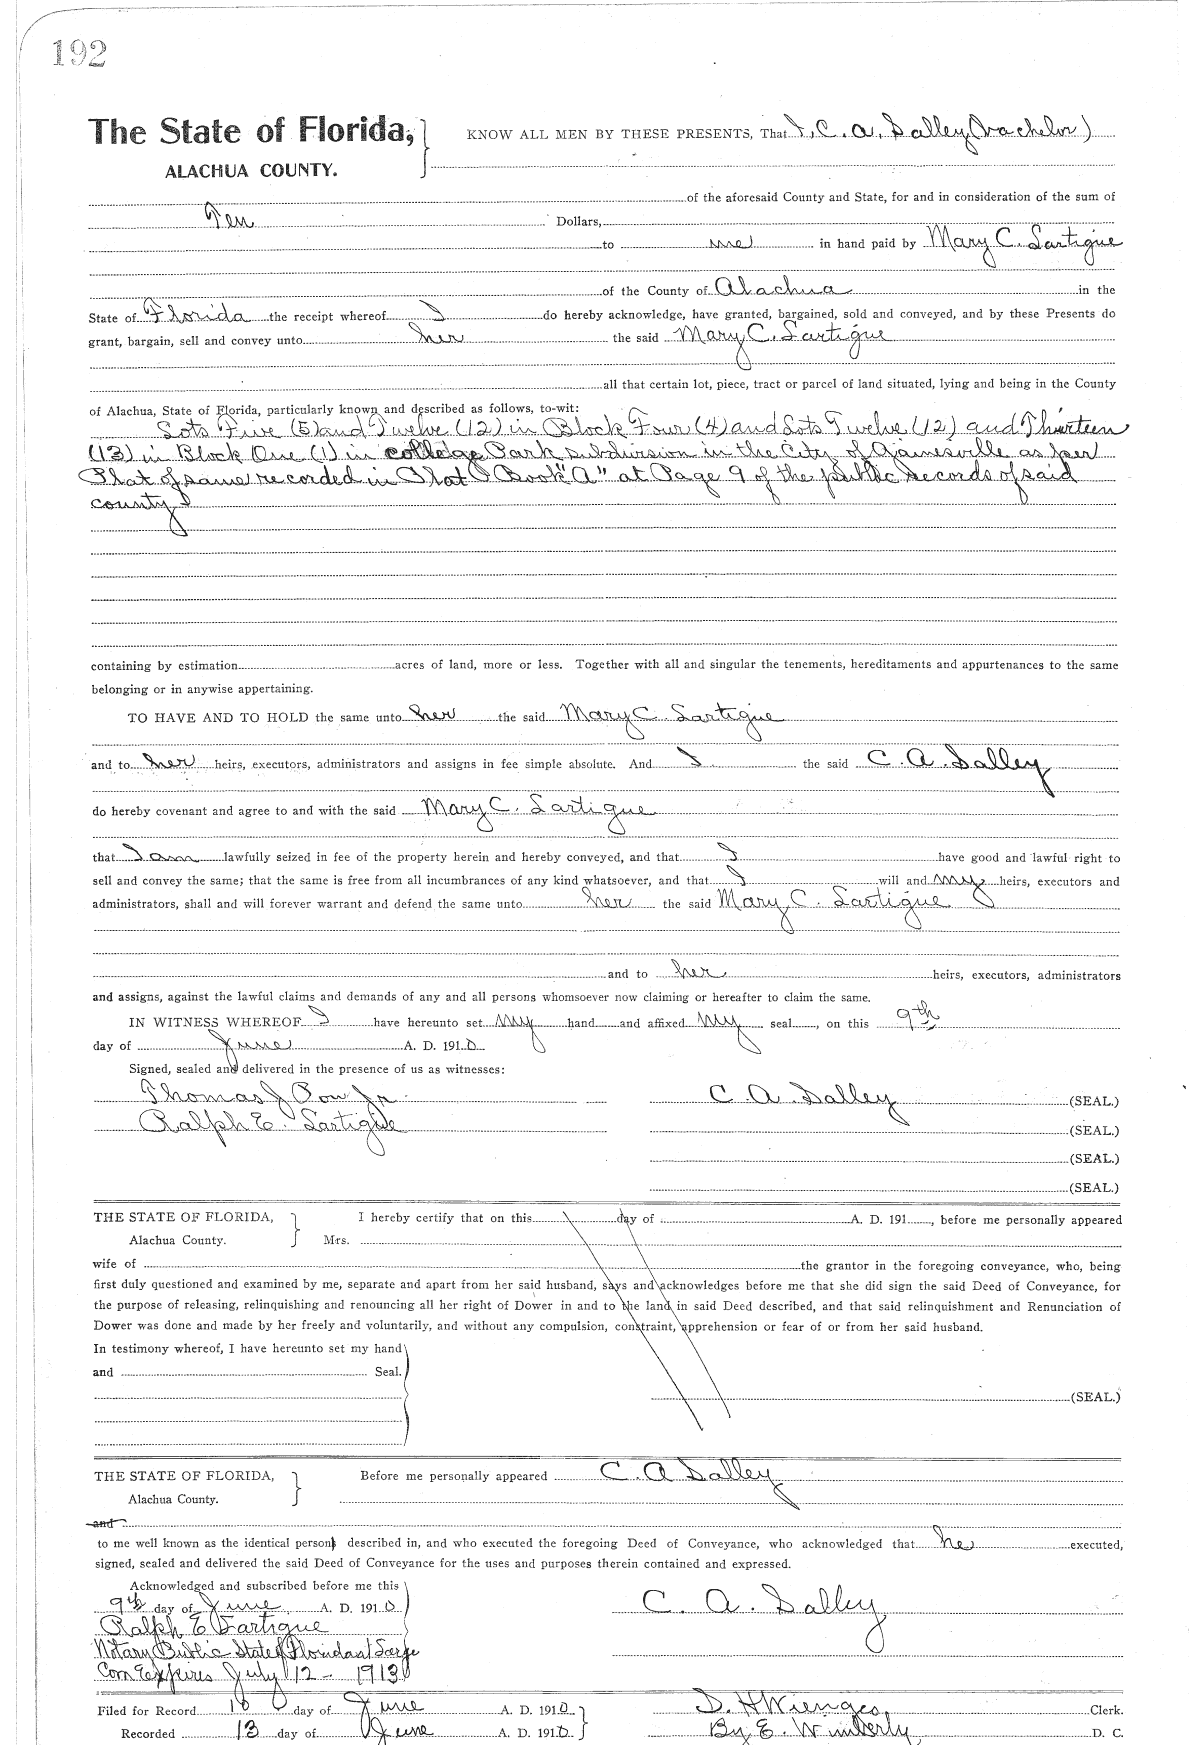 192
The State of Florida,
ALACHUA COUNTY.
KNOW ALL MEN BY THESE PRESENTS, That I, C. A. Salley (bachelor)
of the aforesaid County and State, for and in consideration of the sum of
Ten Dollars,
to me in hand paid by Mary C. Lartigue
of the County of Alachua in the
State of Florida the receipt whereof I do hereby acknowledge, have granted, bargained, sold and conveyed, and by these Presents do
grant, bargain, sell and convey unto her the said Mary C. Lartigue
all that certain lot, piece, tract or parcel of land situated, lying and being in the County
of Alachua, State of Florida, particularly known and described as follows, to-wit:
Lots Five (5) and Twelve (12) in Block Four (4) and Lots Twelve (12) and Thirteen
(13) in Block One (1) in colledge Park subdivision in the City of Gainesville as per
Plat of same recorded in Plat Book "A" at Page 9 of the public records of said
county
containing by estimation acres of land, more or less. Together with all and singular the tenements, hereditaments and appurtenances to the same
belonging or in anywise appertaining.
TO HAVE AND TO HOLD the same unto her the said Mary C. Lartigue
and to her heirs, executors, administrators and assigns in fee simple absolute. And I the said C. A. Salley
do hereby covenant and agree to and with the said Mary C. Lartigue
that I am lawfully seized in fee of the property herein and hereby conveyed, and that I have good and lawful right to
sell and convey the same; that the same is free from all incumbrances of any kind whatsoever, and that I will and my heirs, executors and
administrators, shall and will forever warrant and defend the same unto her the said Mary C. Lartigue
and to her heirs, executors, administrators
and assigns, against the lawful claims and demands of any and all persons whomsoever now claiming or hereafter to claim the same.
IN WITNESS WHEREOF I have hereunto set my hand and affixed my seal, on this 9th
day of June A. D. 1910
Signed, sealed and delivered in the presence of us as witnesses:
Thomas J Pow Jr. C. A. Salley (SEAL.)
Ralph E. Lartigue (SEAL.)
(SEAL.)
(SEAL.)
THE STATE OF FLORIDA, I hereby certify that on this day of A. D. 191 , before me personally appeared
Alachua County. Mrs.
wife of the grantor in the foregoing conveyance, who, being
first duly questioned and examined by me, separate and apart from her said husband, says and acknowledges before me that she did sign the said Deed of Conveyance, for
the purpose of releasing, relinquishing and renouncing all her right of Dower in and to the land in said Deed described, and that said relinquishment and Renunciation of
Dower was done and made by her freely and voluntarily, and without any compulsion, constraint, apprehension or fear of or from her said husband.
In testimony whereof, I have hereunto set my hand
and Seal.
(SEAL.)
THE STATE OF FLORIDA, Before me personally appeared C. A Salley
Alachua County.
and
to me well known as the identical person described in, and who executed the foregoing Deed of Conveyance, who acknowledged that he executed,
signed, sealed and delivered the said Deed of Conveyance for the uses and purposes therein contained and expressed.
Acknowledged and subscribed before me this
9th day of June A. D. 1910 C. A. Salley
Ralph E Lartigue
Notary Public State of Florida at Large
Com Expires July 12 - 1913
Filed for Record 10 day of June A. D. 1910 S. H Wienges Clerk.
Recorded 13 day of June A. D. 1910 By E. Wimberly D. C.